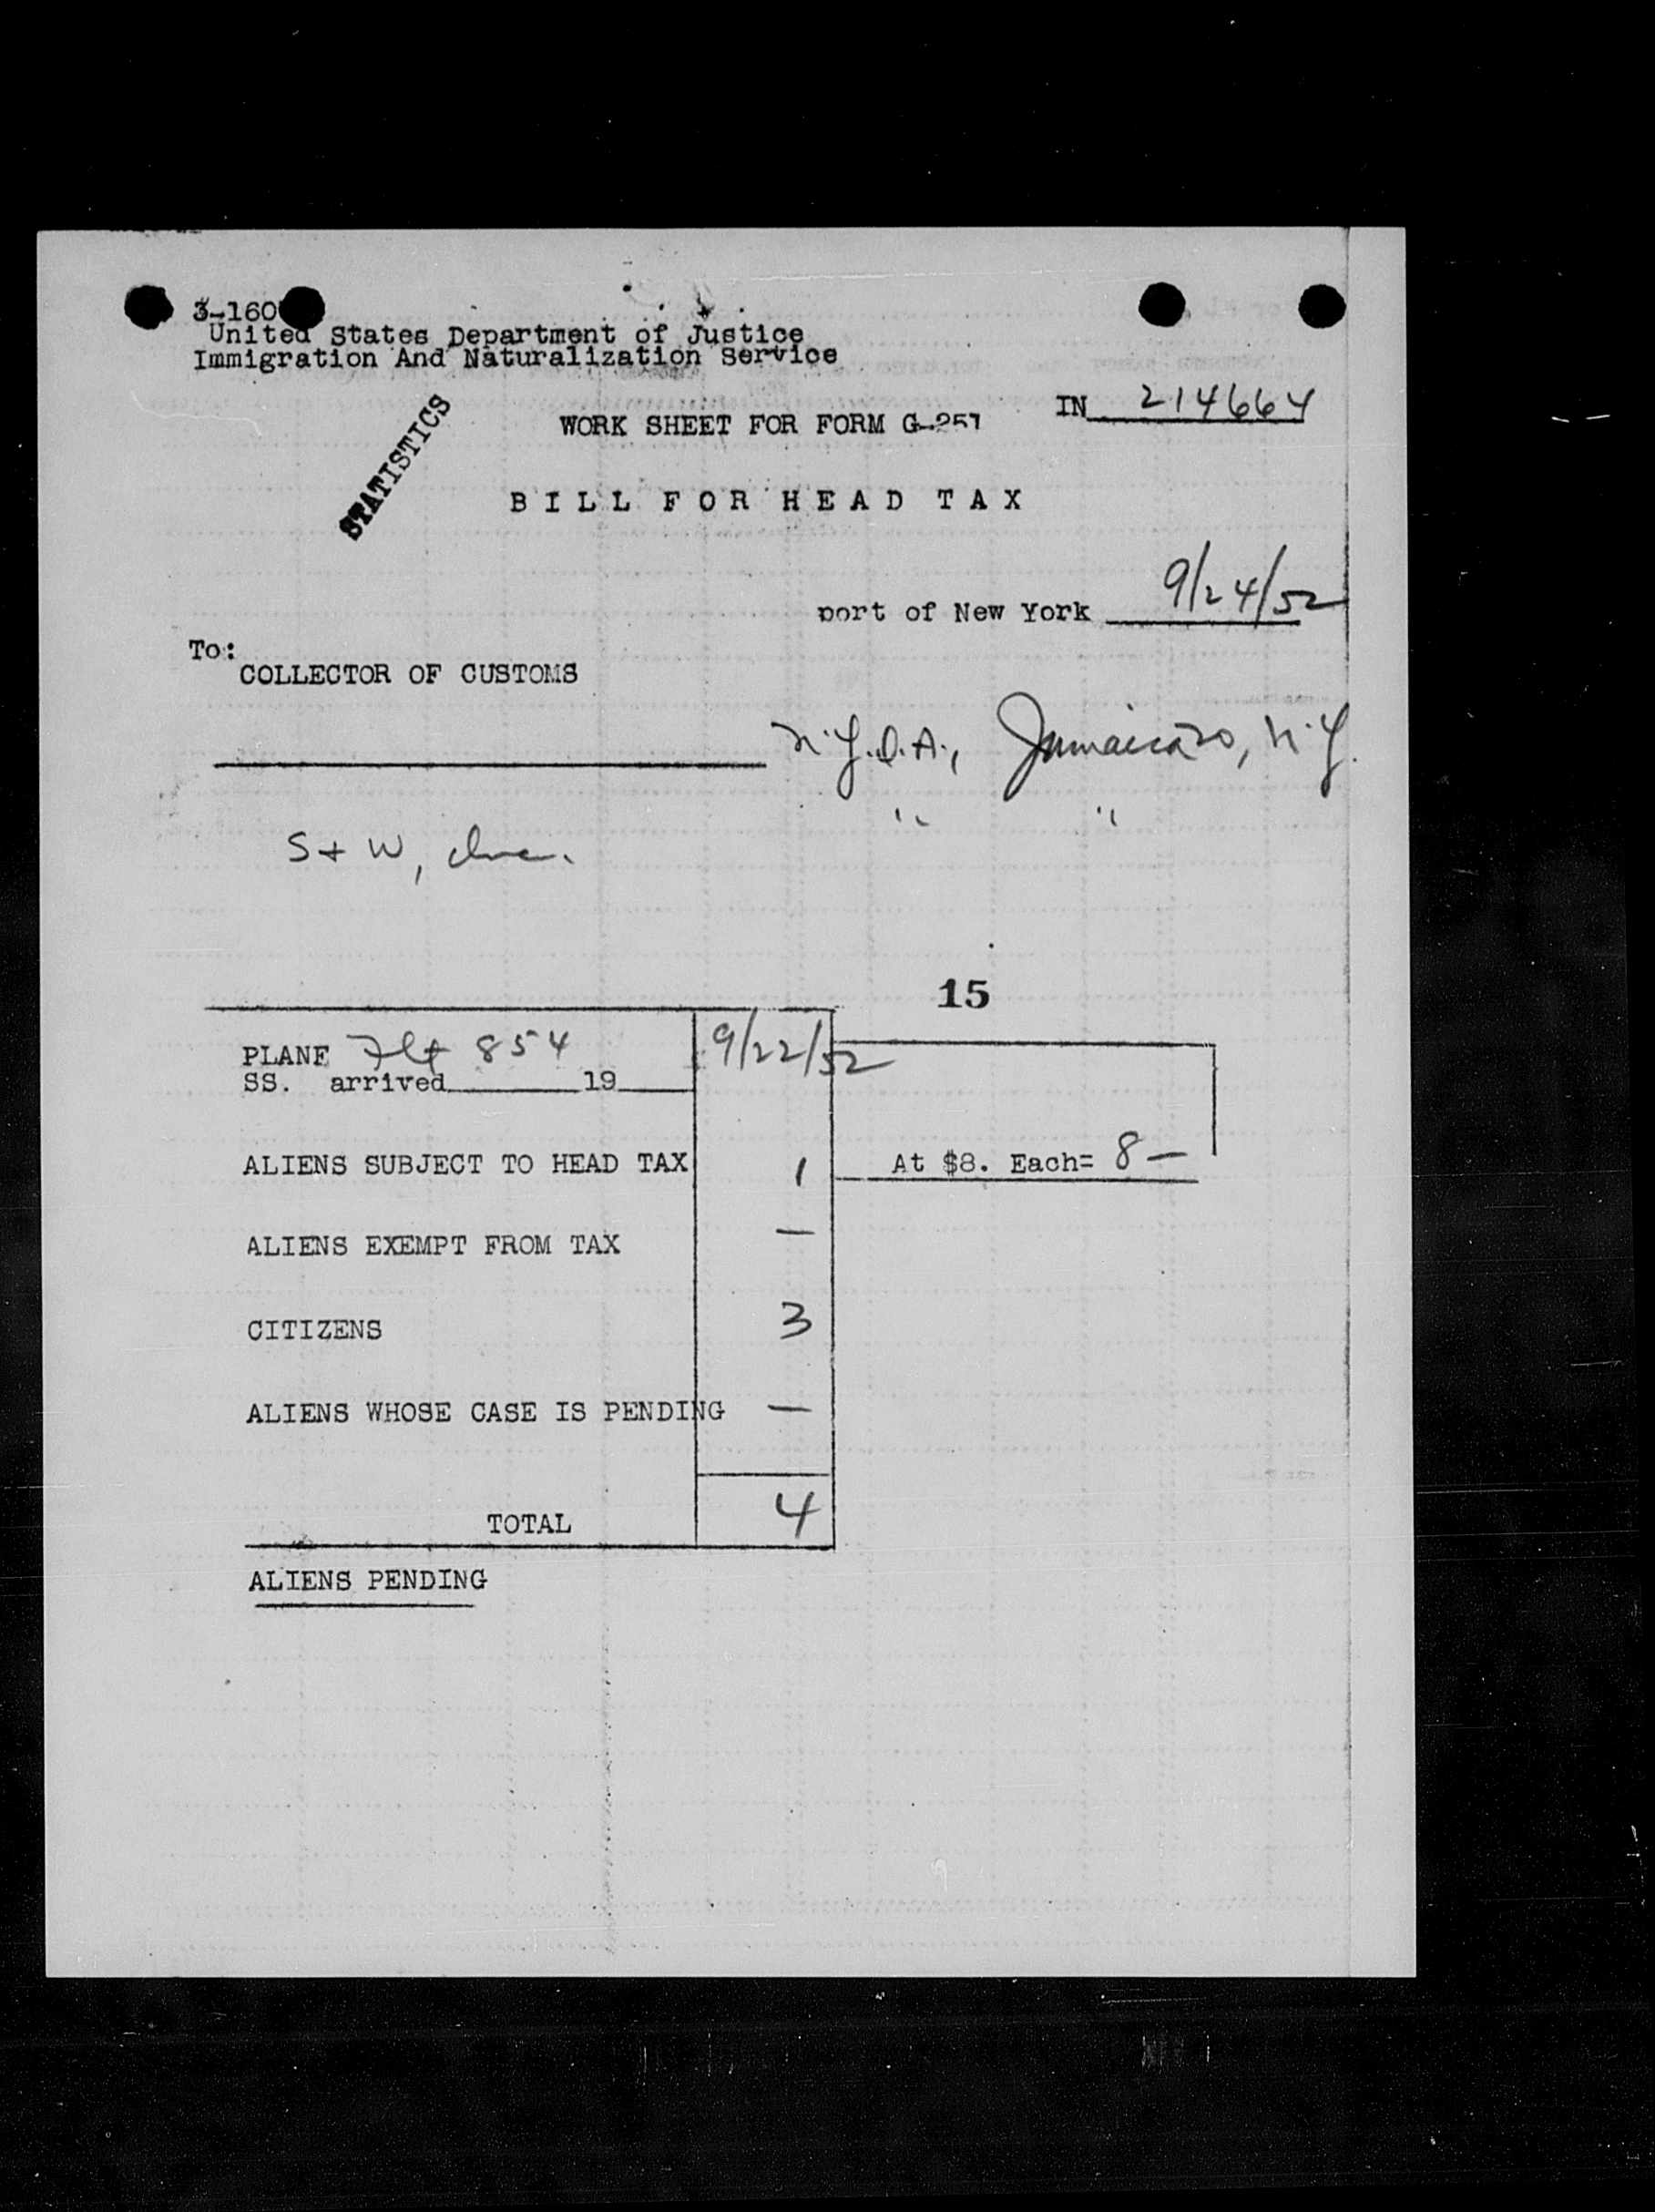 3-160
United States Department of Justice
Immigration And Naturalization Service
IN 214664
WORK SHEET FOR FORM G-257
STATISTICS
BILL FOR HEAD TAX
port of New York 9/24/52
To:
COLLECTOR OF CUSTOMS
N.Y.I.A., Jamaica 30, N.Y.
" "
S + W, Inc.
15
PLANE Flt 854 9/22/52
SS. arrived 19
ALIENS SUBJECT TO HEAD TAX 1 At $8. Each= 8 —
ALIENS EXEMPT FROM TAX —
CITIZENS 3
ALIENS WHOSE CASE IS PENDING —
TOTAL 4
ALIENS PENDING